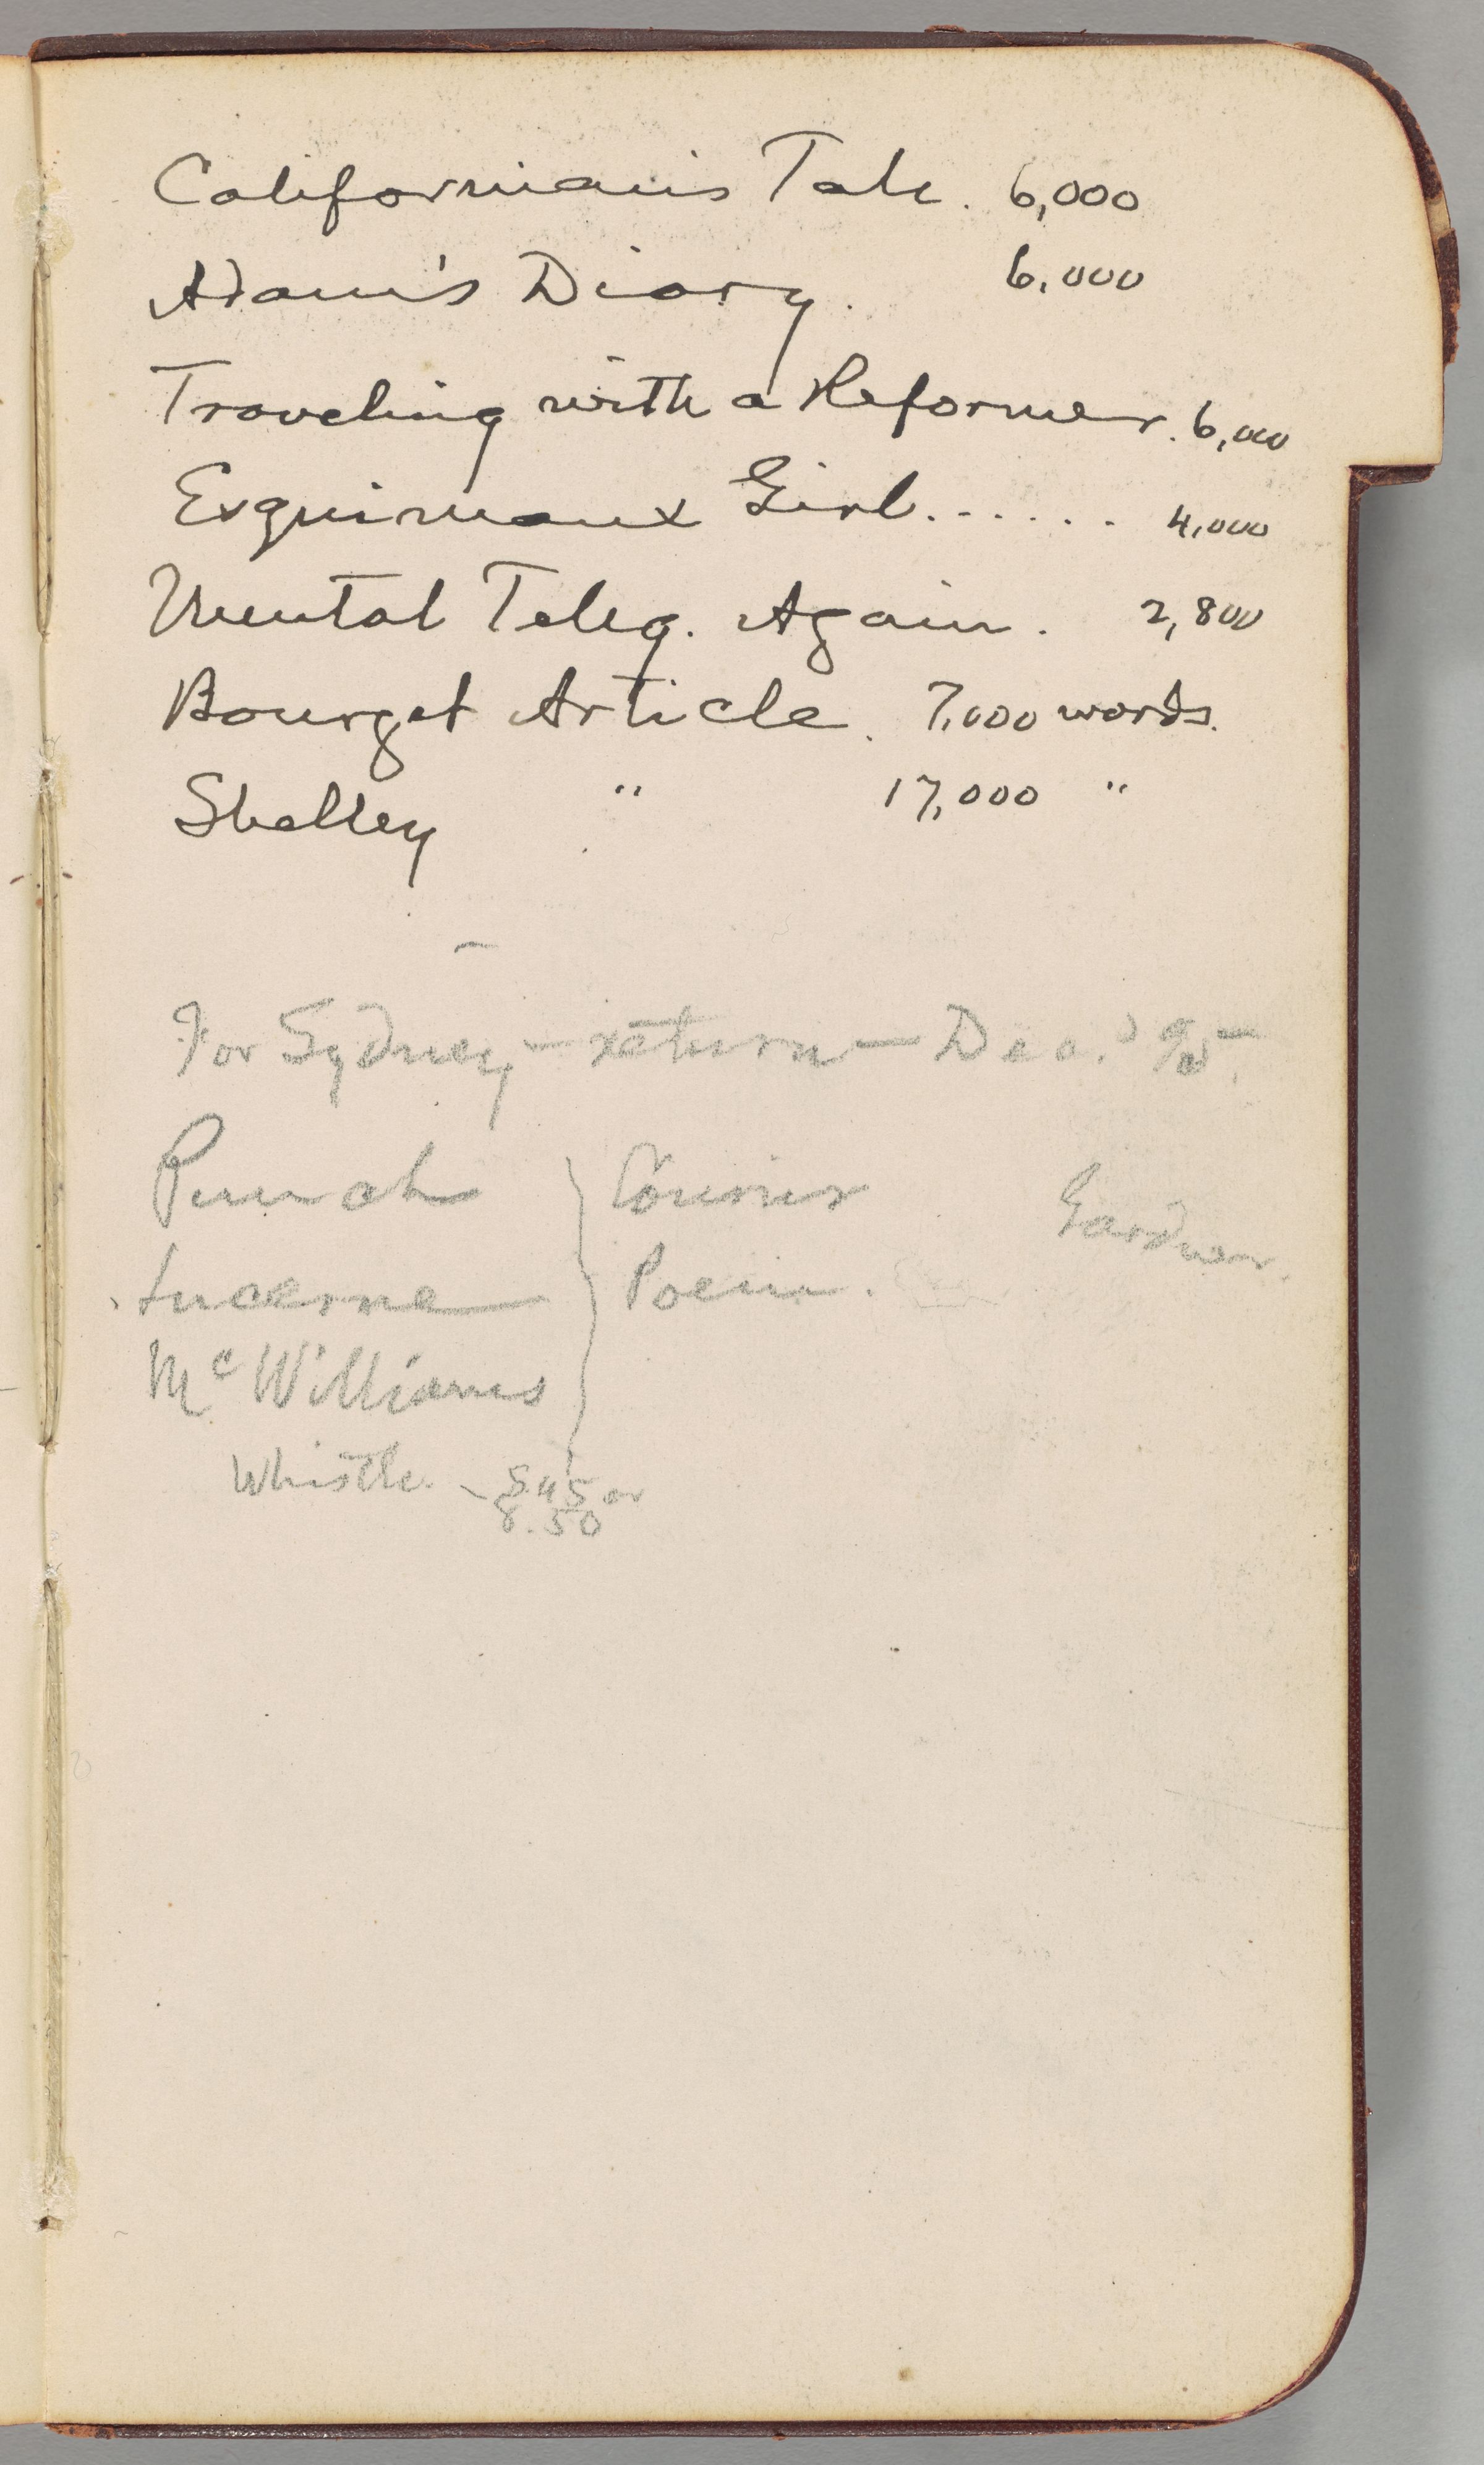 Californian's Tale. 6,000
Adam's Diary. 6,000
Traveling with a Reformer. 6,000
Esquimaux Girl...... 4,000
Mental Teleg. Again. 2,800
Bourget Article. 7,000 words.
Shelley " 17,000 "
For Sydney — return — Dec. '95.
Punch Courier Gardner.
Lucerne Poem.
McWilliams
Whistle. - 8.45 or
8.50